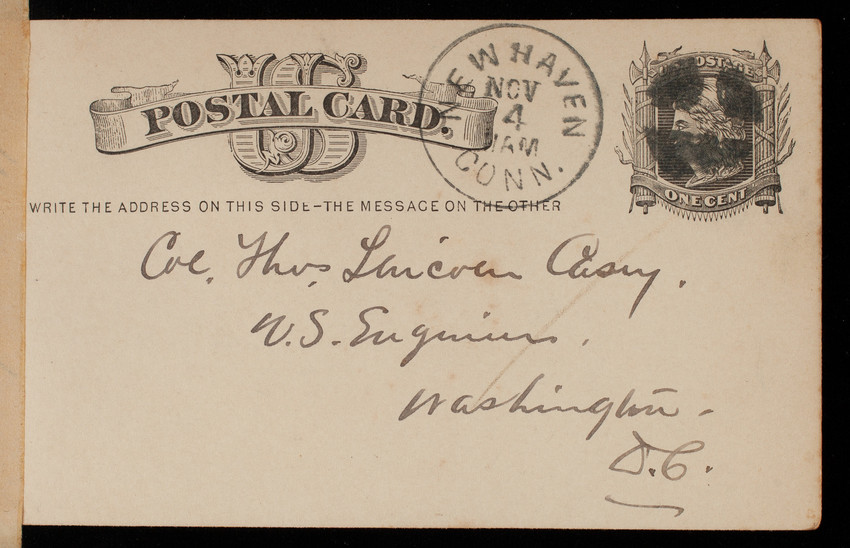 US
POSTAL CARD.
NEW HAVEN
NOV
4
11AM
CONN.
U.S. POSTAGE
ONE CENT
WRITE THE ADDRESS ON THIS SIDE–THE MESSAGE ON THE OTHER
Col. Thos. Lincoln Casey.
U.S. Engineers.
Washington –
D.C.